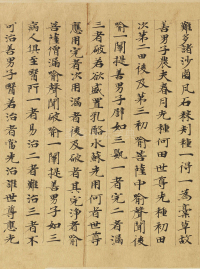 難多諸沙鹵瓦石棘刺種一得一為藁草故
善男子農夫春月先種何田世尊先種初田
次第二田後及第三初喻菩薩中喻聲聞後
喻一闡提善男子譬如三一者完二者漏
三者破若欲盛置乳酪水蘇先用何者世尊
應用完者次用漏者後及破者其完淨者喻
菩薩僧漏喻聲聞破喻一闡提善男子如三
病人俱至醫所一者易治二者難治三者不
可治善男子醫若治者當先治誰世尊應先